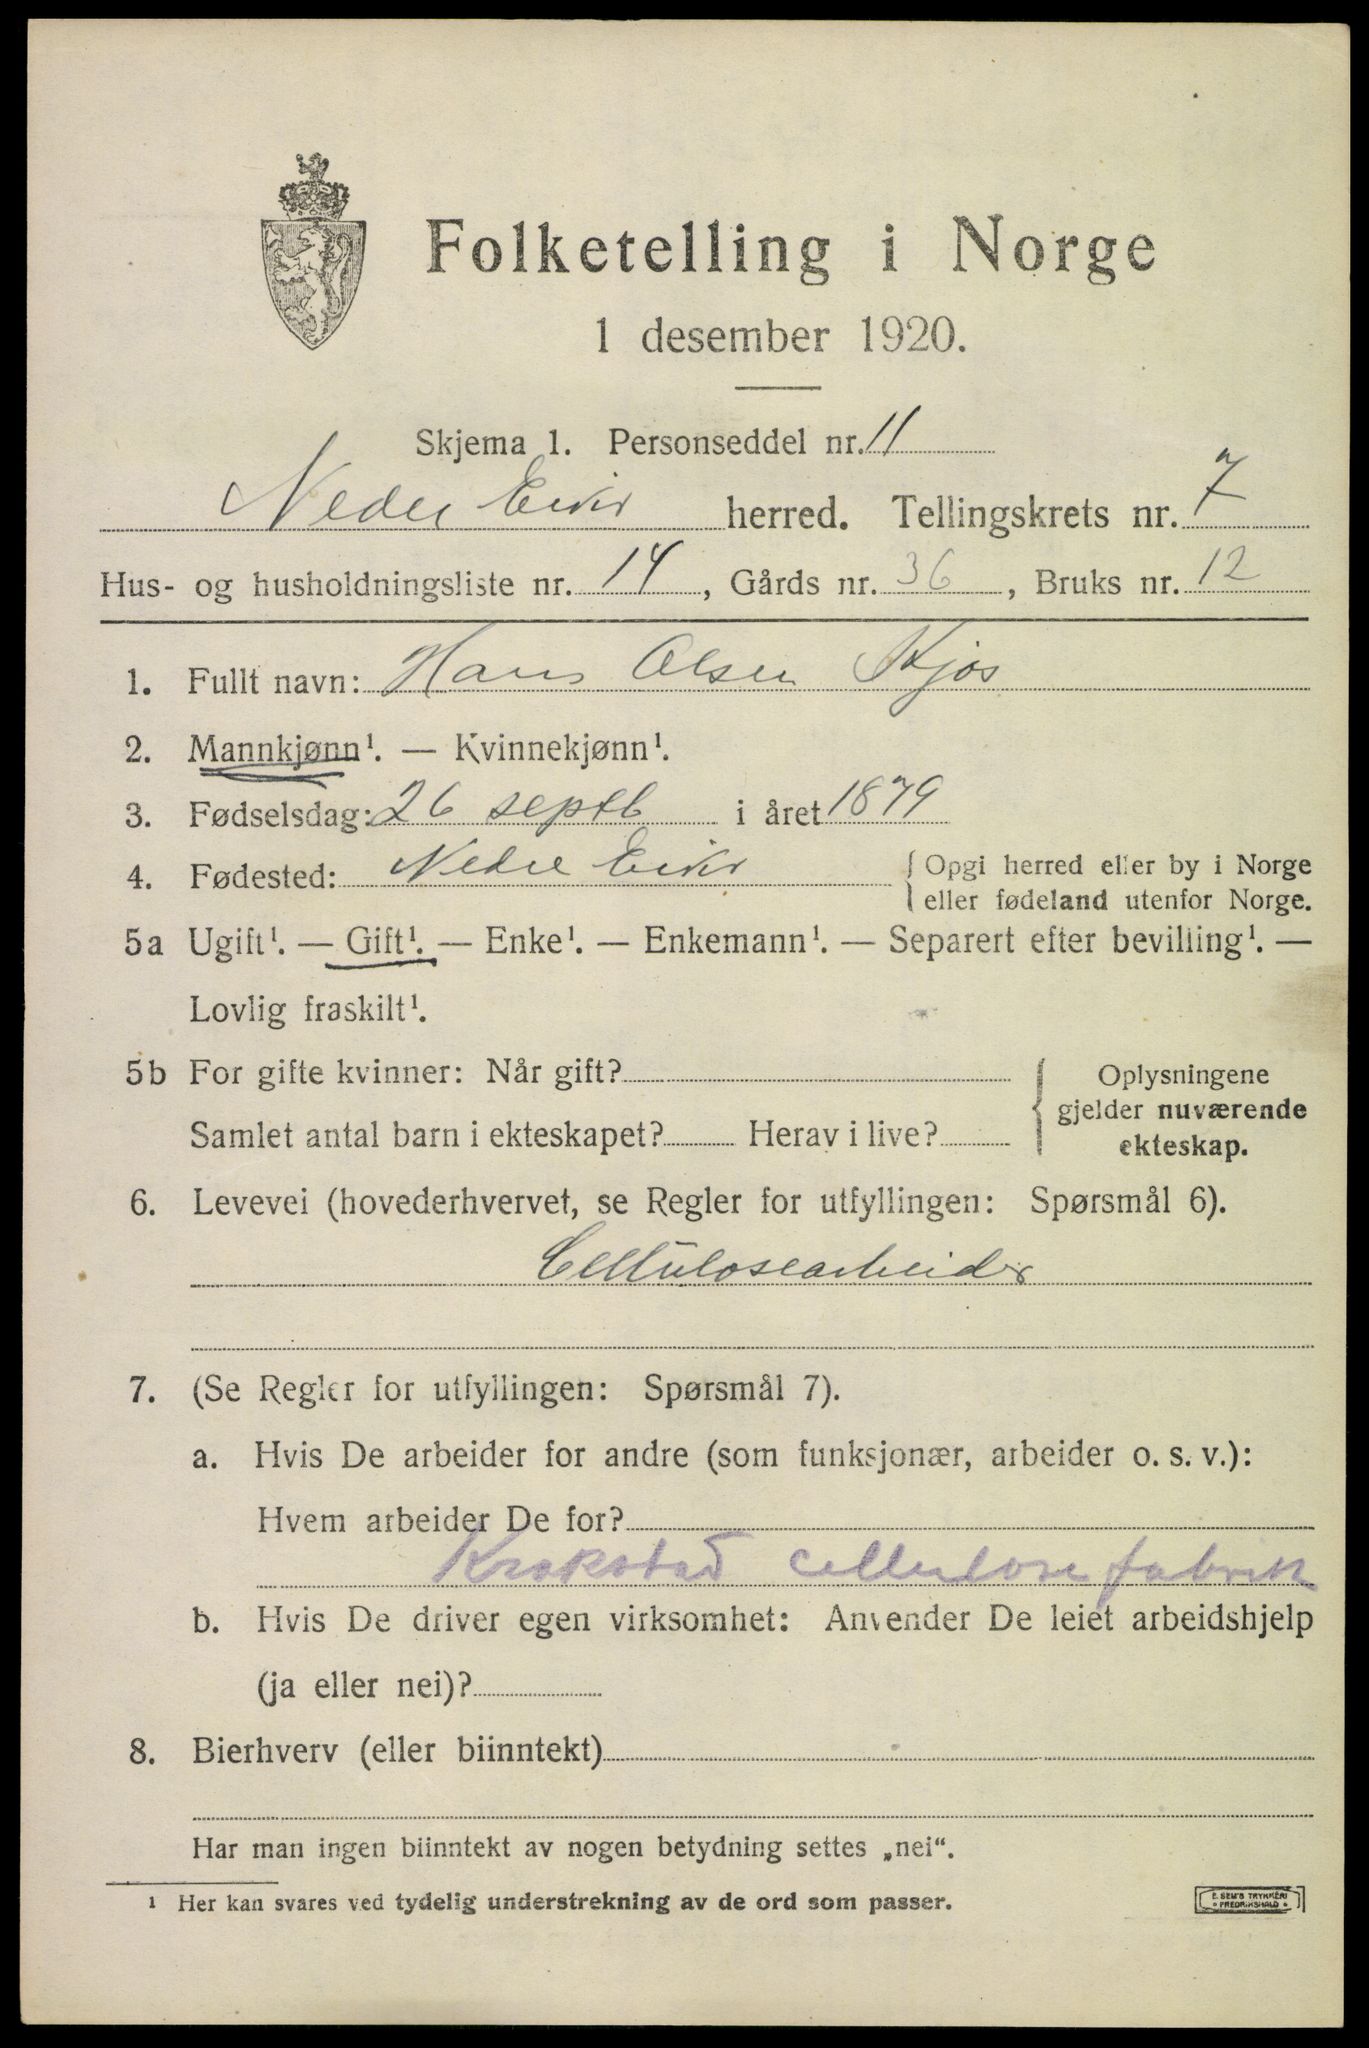 Folketelling i Norge
1 desember 1920.
Skjema 1. Personseddel nr. 11
Nedre Eiker herred. Tellingskrets nr. 7
Hus- og husholdningsliste nr. 14, Gårds nr. 36, Bruks nr. 12
1. Fullt navn: Hans Olsen Kjos
2. Mannkjønn¹. — Kvinnekjønn¹.
3. Fødselsdag: 26 septb i året 1879
4. Fødested: Nedre Eiker { Opgi herred eller by i Norge
eller fødeland utenfor Norge.
5a Ugift¹. — Gift¹. — Enke¹. — Enkemann¹. — Separert efter bevilling¹. —
Lovlig fraskilt¹.
5b For gifte kvinner: Når gift?
Samlet antal barn i ekteskapet? Herav i live?
{ Oplysningene
gjelder nuværende
ekteskap.
6. Levevei (hovederhvervet, se Regler for utfyllingen: Spørsmål 6).
Cellulosearbeider
7. (Se Regler for utfyllingen: Spørsmål 7).
a. Hvis De arbeider for andre (som funksjonær, arbeider o. s. v.):
Hvem arbeider De for?
Krokstad cellulosefabrik
b. Hvis De driver egen virksomhet: Anvender De leiet arbeidshjelp
(ja eller nei)?
8. Bierhverv (eller biinntekt)
Har man ingen biinntekt av nogen betydning settes „nei“.
¹ Her kan svares ved tydelig understrekning av de ord som passer.
E. SEM'S TRYKKERI
FREDRIKSHALD